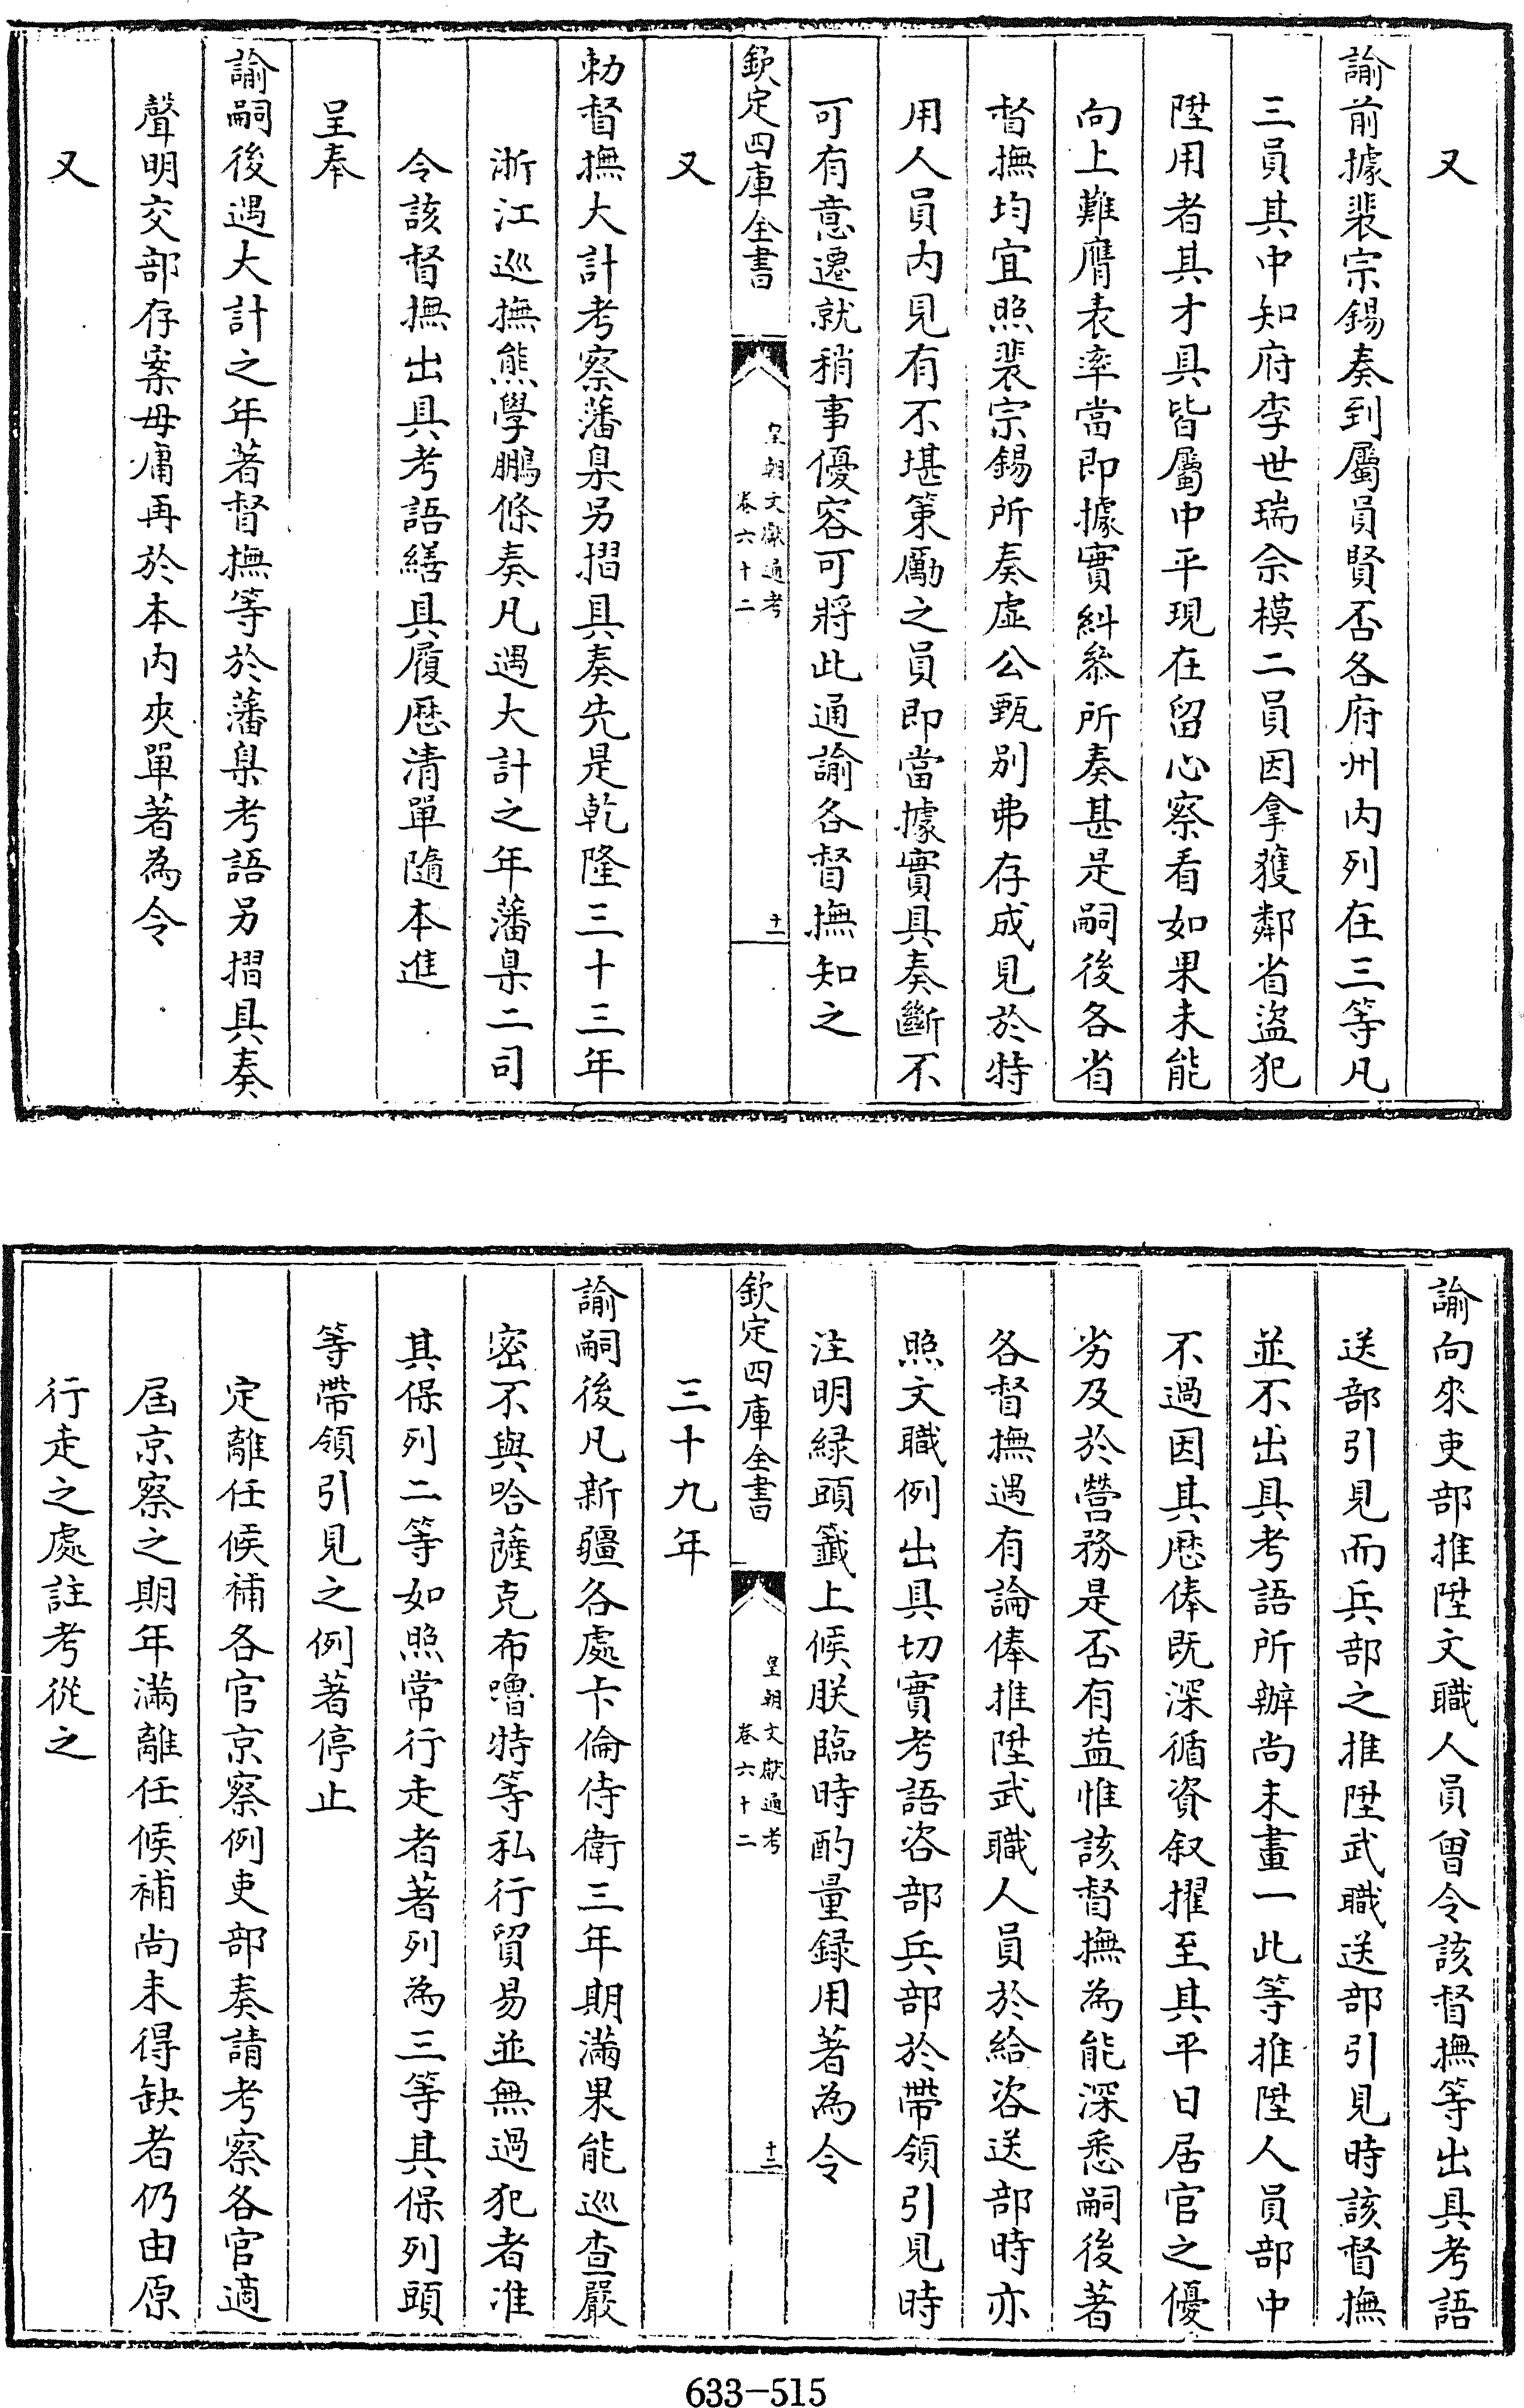 又
諭前據裴宗錫奏到屬員賢否各府州内列在三等凡
三員其中知府李世瑞佘模二員因拿獲鄰省盜犯
陞用者其才具皆屬中平現在留心察看如果未能
向上難膺表率當即據實糾叅所奏甚是嗣後各省
督撫均宜照裴宗錫所奏虛公甄别弗存成見於特
用人員内見有不堪策勵之員即當據實具奏斷不
可有意遷就稍事優容可將此通諭各督撫知之
欽定四庫全書
皇朝文獻通考
卷六十二
十一
又
勅督撫大計考察藩臬另摺具奏先是乾隆三十三年
浙江巡撫熊學鵬條奏凡遇大計之年藩臬二司
令該督撫出具考語繕具履歴清單隨本進
呈奉
諭嗣後遇大計之年著督撫等於藩臬考語另摺具奏
聲明交部存案毋庸再於本内夾單著為令
又
諭向來吏部推陞文職人員曾令該督撫等出具考語
送部引見而兵部之推陞武職送部引見時該督撫
並不出具考語所辦尚未畫一此等推陞人員部中
不過因其歴俸既深循資叙擢至其平日居官之優
劣及於營務是否有益惟該督撫為能深悉嗣後著
各督撫遇有論俸推陞武職人員於給咨送部時亦
照文職例出具切實考語咨部兵部於帶領引見時
注明緑頭籤上候朕臨時酌量録用著為令
欽定四庫全書
皇朝文獻通考
卷六十二
十二
三十九年
諭嗣後凡新疆各處卡倫侍衛三年期滿果能巡查嚴
密不與哈薩克布嚕特等私行貿易並無過犯者准
其保列二等如照常行走者著列為三等其保列頭
等帶領引見之例著停止
定離任候補各官京察例吏部奏請考察各官適
屆京察之期年滿離任候補尚未得缺者仍由原
行走之處註考從之
633-515